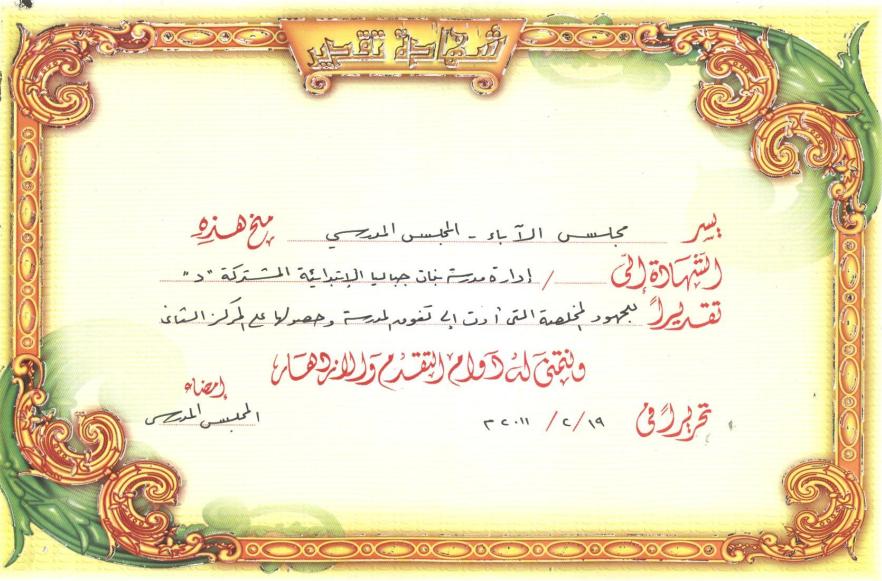 شهادة تقدير
يسر مجلس الآباء - المجلس المدرسي منح هذه
الشهادة إلى / إدارة مدرسة بنات جباليا الإبتدائية المشتركة "د"
تقديراً للجهود المخلصة التي أدت إلى تفوق المدرسة وحصولها على المركز الثاني
ونتمنى له دوام التقدم والازدهار
إمضاء
تحريراً في ١٩ / ٢ / ٢٠١١ م
المجلس المدرسي